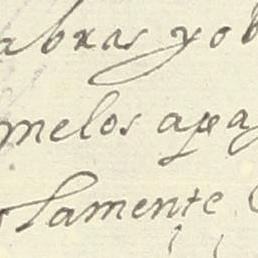 abras y ob
melos apa
lamente